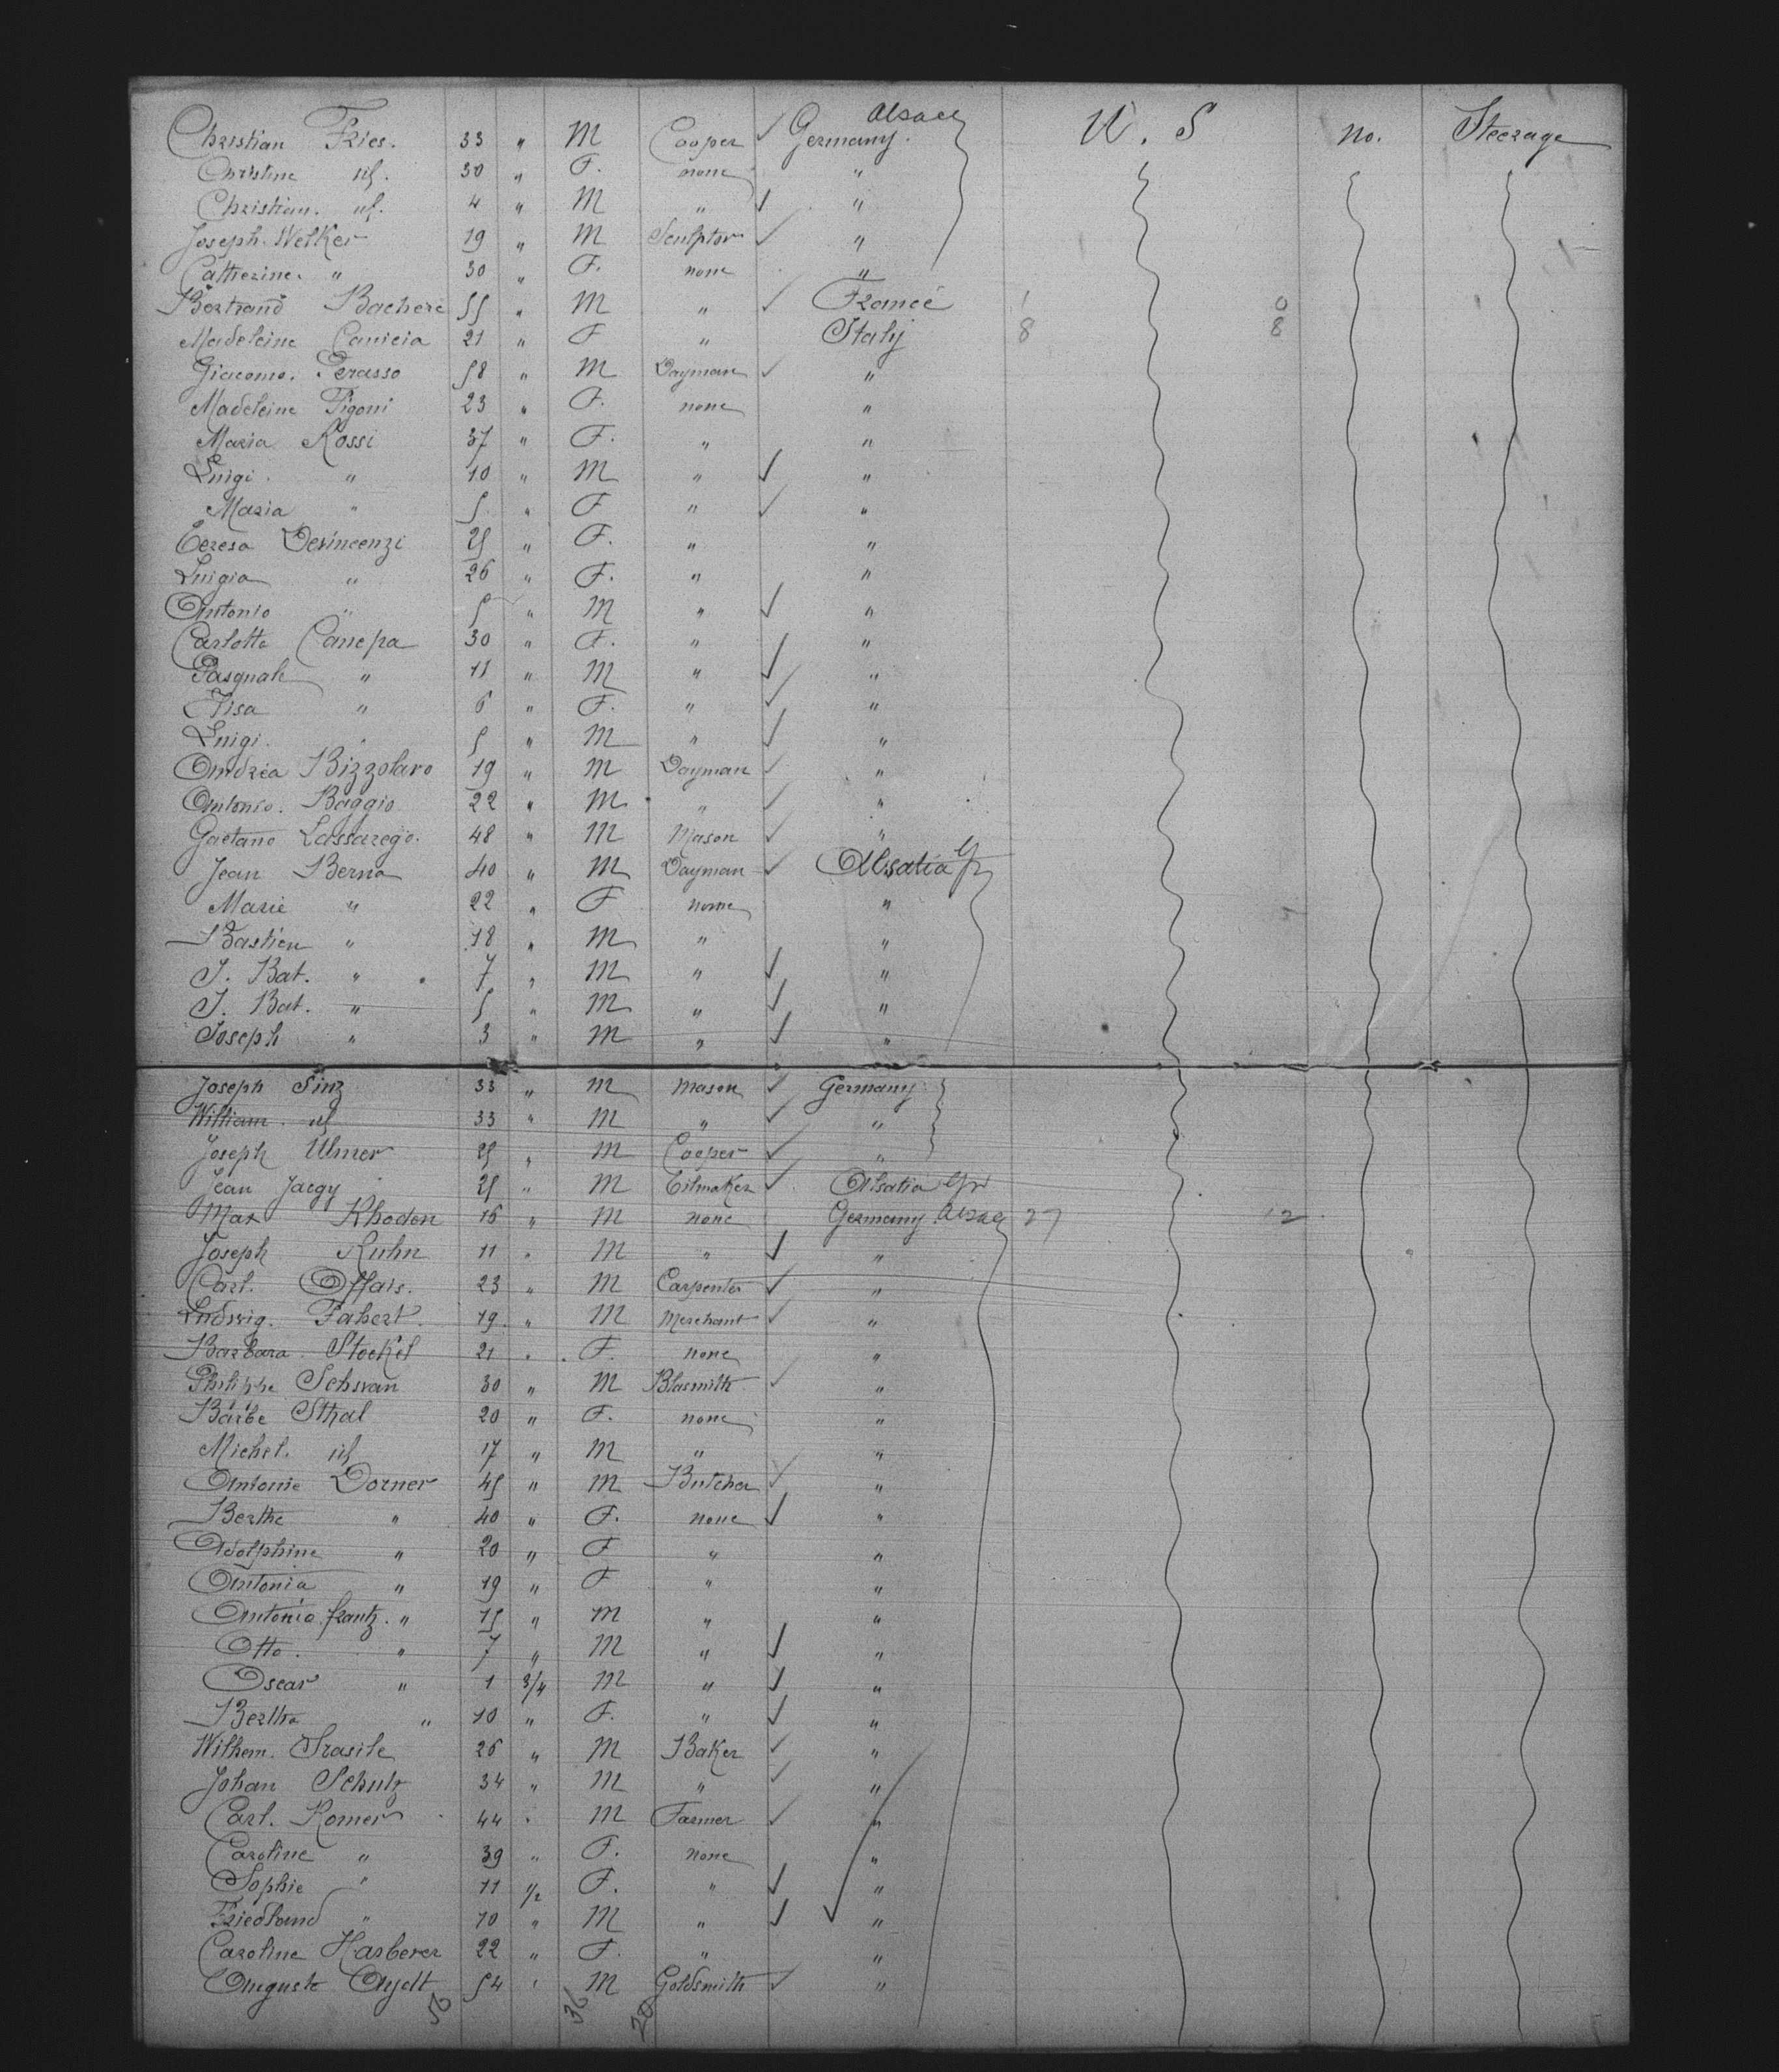 Christian Fries. 33 " M Cooper ✓ Germany. Alsace U. S no. Steerage
Christine id. 30 " F. none "
Christian. id. 4 " M " ✓ "
Joseph. Welker 19 " M Sculptor ✓ "
Catherine. " 30 " F. none "
Bertrand Bachere 55 " M " ✓ France 1 0
Madeleine Canicia 21 " F " Italy 8 8
Giacomo. Perasso 58 " M Dayman ✓ "
Madeleine Figoni 23 " F. none "
Maria Rossi 37 " F. " "
Luigi. " 10 " M " ✓ "
Maria " 5 " F " ✓ "
Teresa Devincenzi 25 " F. " "
Luigia " 26 " F. " "
Antonio " 5 " M " ✓ "
Carlotta Canepa 30 " F. " "
Pasquale " 11 " M " ✓ "
Pisa " 6 " F. " ✓ "
Luigi. " 5 " M " ✓ "
Andrea Bizzolaro 19 " M Dayman ✓ "
Antonio. Baggio 22 " M " ✓ "
Gaetano Lassarego. 48 " M Mason ✓ "
Jean Berna 40 " M Dayman ✓ Alsatia Gr
Marie " 22 " F none "
Bastien " 18 " M " "
J. Bat. " 7 " M " ✓ "
J. Bat. " 5 " M " ✓ "
Joseph " 3 " M " ✓ "
Joseph Sinz 33 " M Mason ✓ Germany
William. id 33 " M " ✓ "
Joseph Ulmer 25 " M Cooper ✓ "
Jean Jaegy 25 " M Tilmaker ✓ Alsatia Gr
Max Rhoden 16 " M none Germany Alsace 27 12
Joseph Kuhn 11 " M " ✓ "
Carl. Offais. 23 " M Carpenter ✓ "
Ludwig. Fabert. 19 " M Merchant ✓ "
Barbara Stockel 21 " F. none "
Philippe Schwan 30 " M Blasmith ✓ "
Barbe Sthal 20 " F. none "
Michel. id 17 " M " "
Antonie Dorner 45 " M Butcher ✓ "
Berthe " 40 " F. none ✓ "
Adolphine " 20 " F " "
Antonia " 19 " F " "
Antonio frantz. " 15 " M " "
Otto. " 7 " M " ✓ "
Oscar " 1 3/4 M " ✓ "
Bertha " 10 " F. " ✓ "
Wilhem. Trasile 26 " M Baker ✓ "
Johan Schulz 34 " M " ✓ "
Carl. Romer 44 " M Farmer ✓ "
Caroline " 39 " F. none "
Sophie " 11 1/2 F. " ✓ "
Friedland " 10 " M " ✓ "
Caroline Harberer 22 " F. " "
Auguste Aydt 54 " M Goldsmith ✓ "
56 36 20